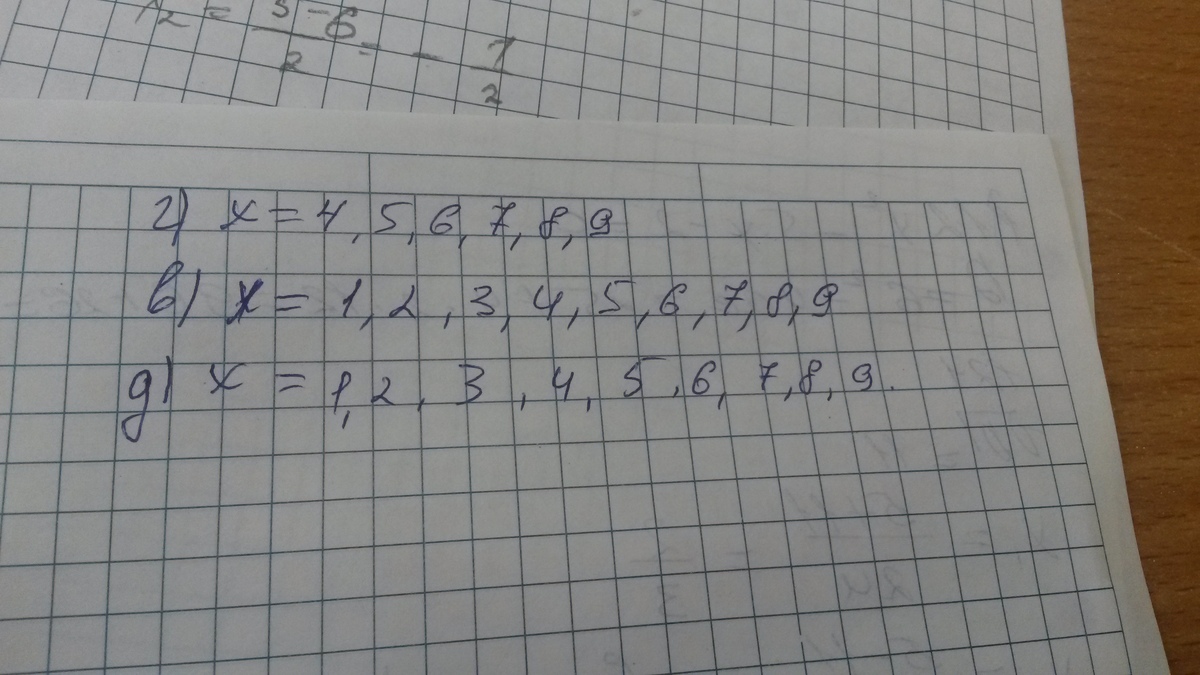 5 - 6
2
= - 1
2
г) x = 4, 5, 6, 7, 8, 9
в) x = 1, 2, 3, 4, 5, 6, 7, 8, 9
д) x = 1, 2, 3, 4, 5, 6, 7, 8, 9.